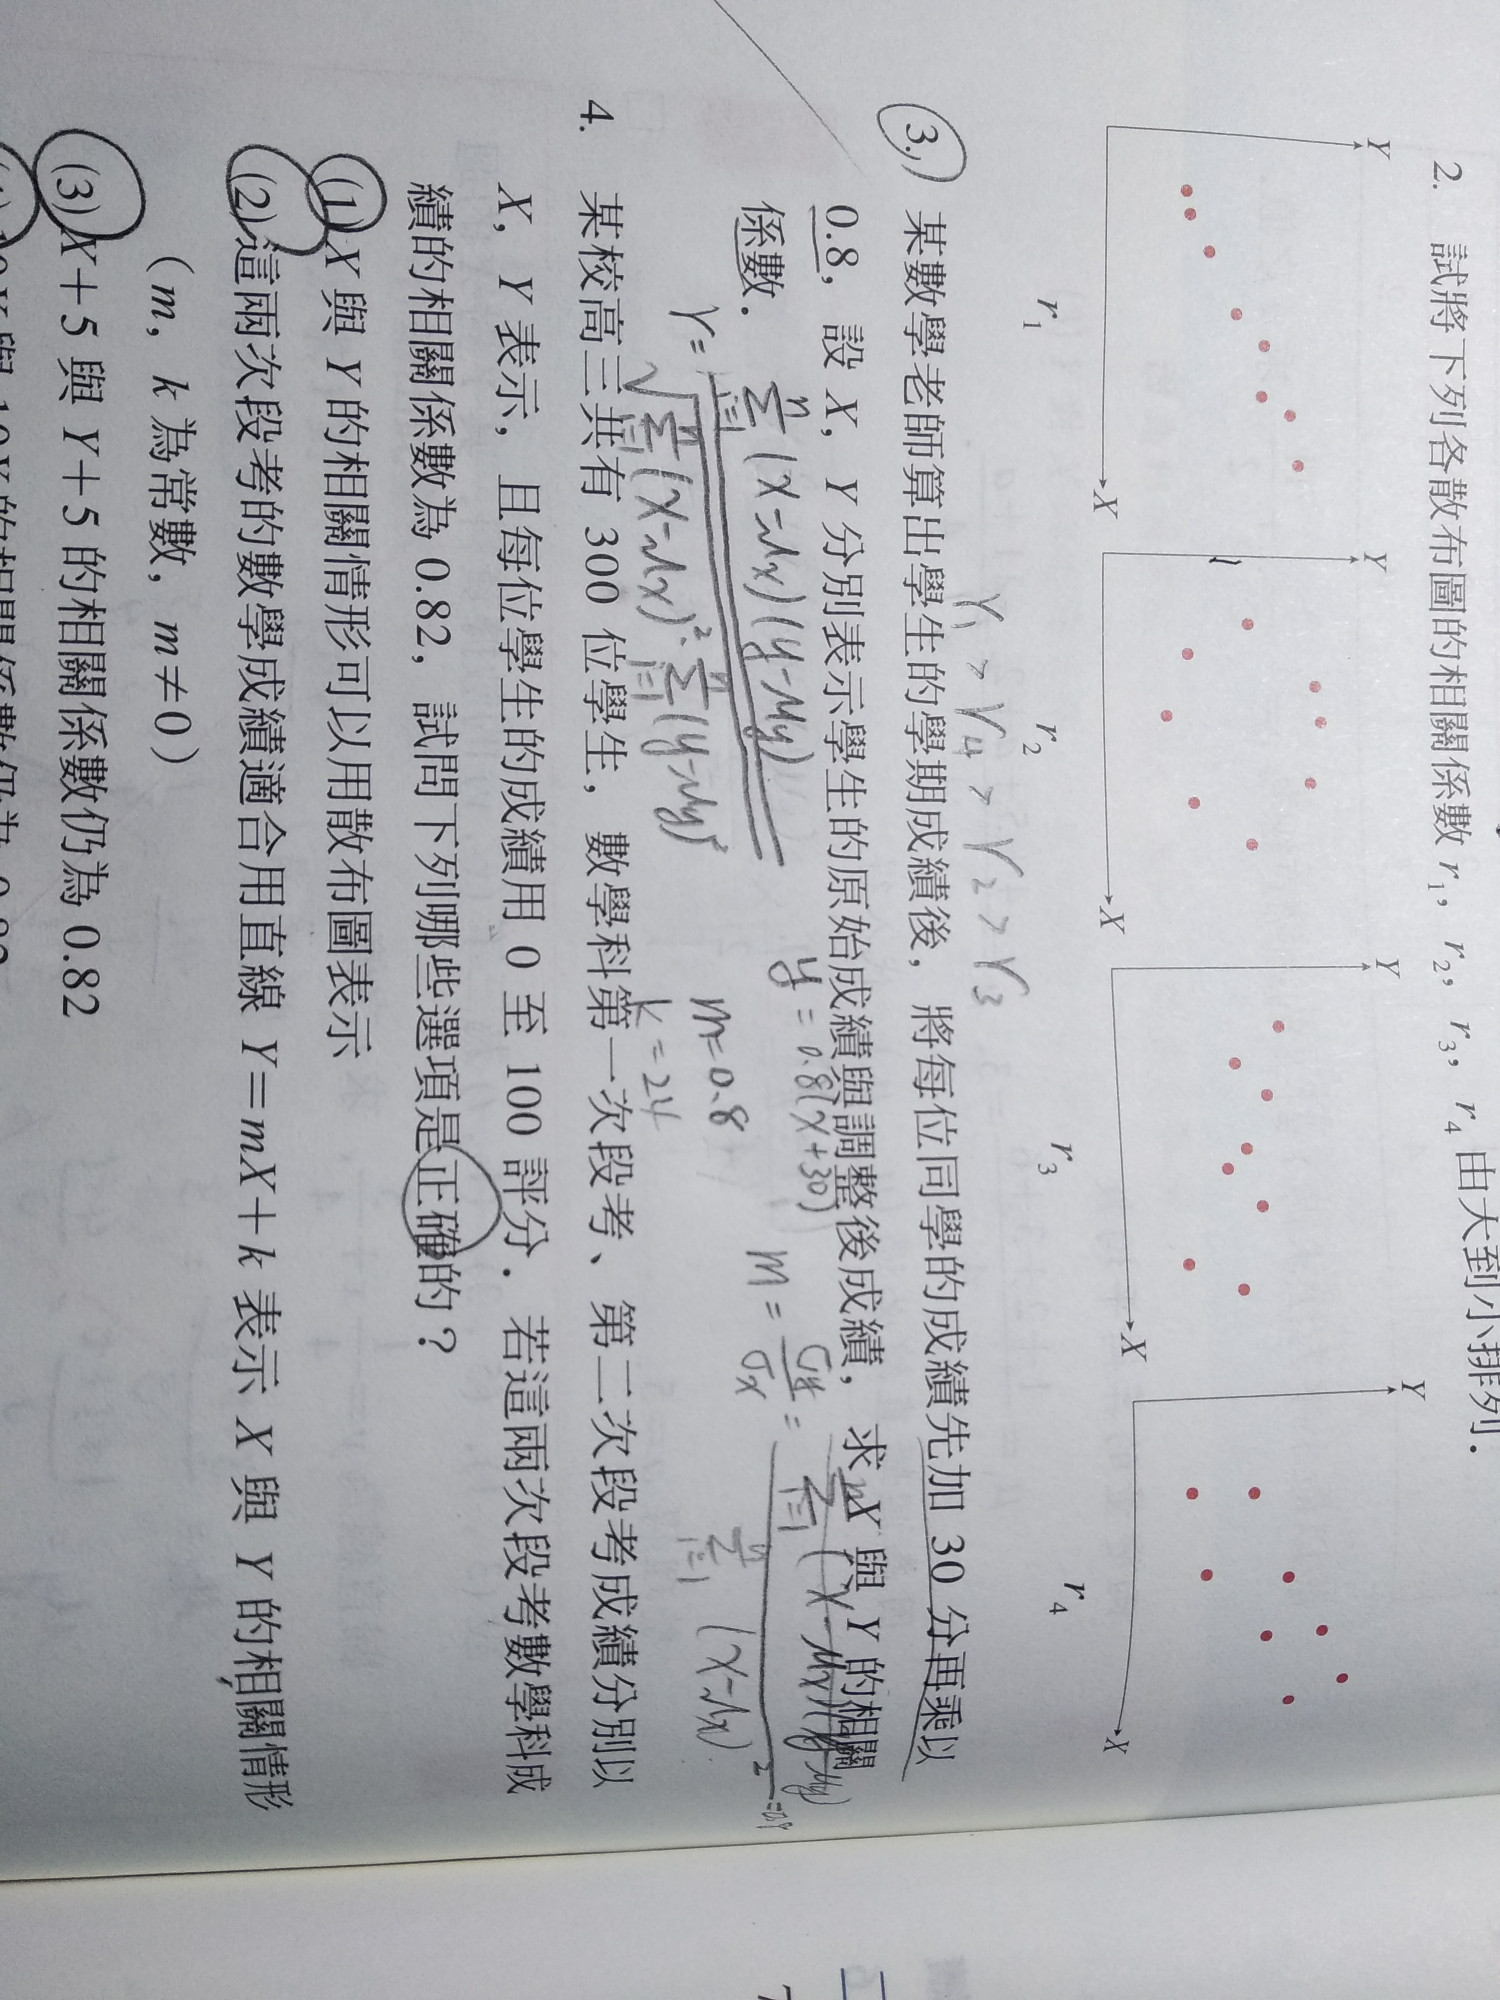 2. 試將下列各散布圖的相關係數 r₁, r₂, r₃, r₄ 由大到小排列.
Y Y Y Y
X X X X
r₁ r₂ r₃ r₄
γ₁ > γ₄ > γ₂ > γ₃
3. 某數學老師算出學生的學期成績後, 將每位同學的成績先加 30 分再乘以
0.8, 設 X, Y 分別表示學生的原始成績與調整後成績, 求 X 與 Y 的相關
係數.
y = 0.8(x+30)
m=0.8
k=24
4. 某校高三共有 300 位學生, 數學科第一次段考、第二次段考成績分別以
X, Y 表示, 且每位學生的成績用 0 至 100 評分. 若這兩次段考數學科成
績的相關係數為 0.82, 試問下列哪些選項是正確的?
(1) X 與 Y 的相關情形可以用散布圖表示
(2) 這兩次段考的數學成績適合用直線 Y=mX+k 表示 X 與 Y 的相關情形
(m, k 為常數, m≠0)
(3) X+5 與 Y+5 的相關係數仍為 0.82